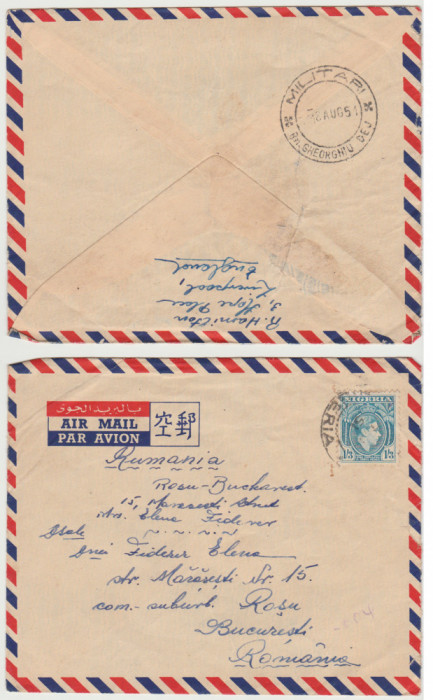 MILITARI
AUG 51
BR. GHEORGHIU DEJ
R. Hamilton
3, Hope Place
Liverpool,
England
AIR MAIL
PAR AVION
空郵
NIGERIA
1/3 1/3
ERIA
Rumania
Rosu-Bucharest.
15, Marasesti Street
Mrs. Elena Fiderer
Dnei Fiderer Elena
str. Mărăşeşti Nr. 15.
com. suburb. Roşu
Bucureşti
România